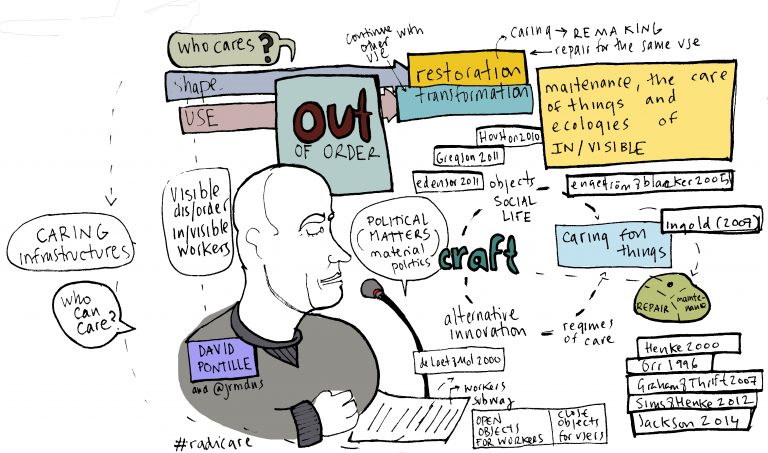 who cares?
shape
USE
OUT
OF ORDER
continue with
other
use
restoration
transformation
caring → REMAKING
repair for the same use
maitenance, the care
of things and
ecologies of
IN/VISIBLE
Houston 2010
Gregson 2011
edensor 2011
objects
SOCIAL
LIFE
engeström & blaacker 2005
ingold (2007)
caring for
things
craft
POLITICAL
(MATTERS)
material
politics
VISIBLE
dis/order
in/visible
workers
CARING
infrastructures
who
can
care?
DAVID
PONTILLE
and @jrmdns
#radicare
alternative
innovation
regimes
of care
REPAIR
maite-
nance
de laet & Mol 2000
workers
subway
OPEN
OBJECTS
FOR WORKERS
CLOSE
objects
for users
Henke 2000
Orr 1996
Graham & Thrift 2007
Sims & Henke 2012
Jackson 2014